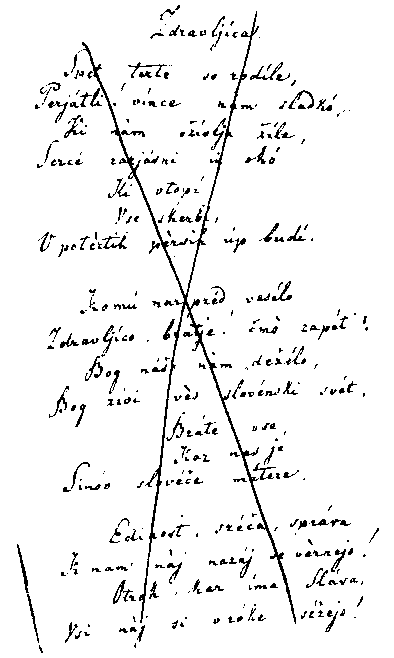 Zdravljica.
Spet terte so rodile,
Perjátli! vince nam sladkó,
Ki nàm oživlja žile,
Sercé razjásni in okó
Ki vtopi
Vse skerbi,
V potèrtih pèrsih úp budí.
Komú narpréd vesélo
Zdravljico, bratje! čmò zapét'!
Bog náši nàm deželo,
Bog živi vès slovénski svét,
Bráte vse,
Kar nas je
Sinóv slovéče mátere.
Edinost, sréča, správa
K nam nàj nazáj se vèrnejo!
Otrók, kar ima Sláva,
Vsi nàj si v róke séžejo!